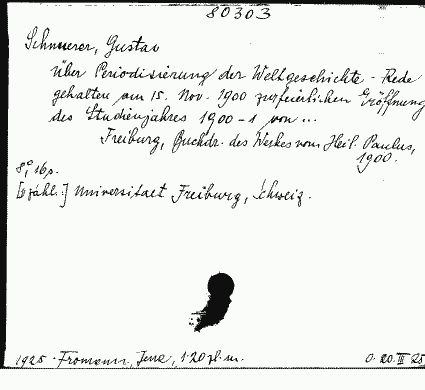 80303
Schnurer, Gustav
über Periodisierung der Weltgeschichte - Rede
gehalten am 15. Nov. 1900 zur feierlichen Eröffnung
des Studienjahres 1900-1 von ...
Freiburg, Buchdr. des Werkes vom Heil. Paulus,
1900.
8°, 16 p.
Universitaet Freiburg, Schweiz.
1925 - Fromann, Jena, 1.20
20. III 25